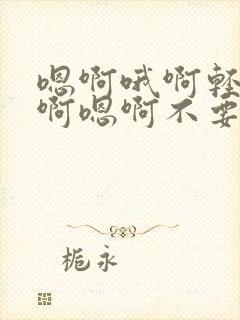 嗯啊哦啊轻
啊嗯啊不要
栀永